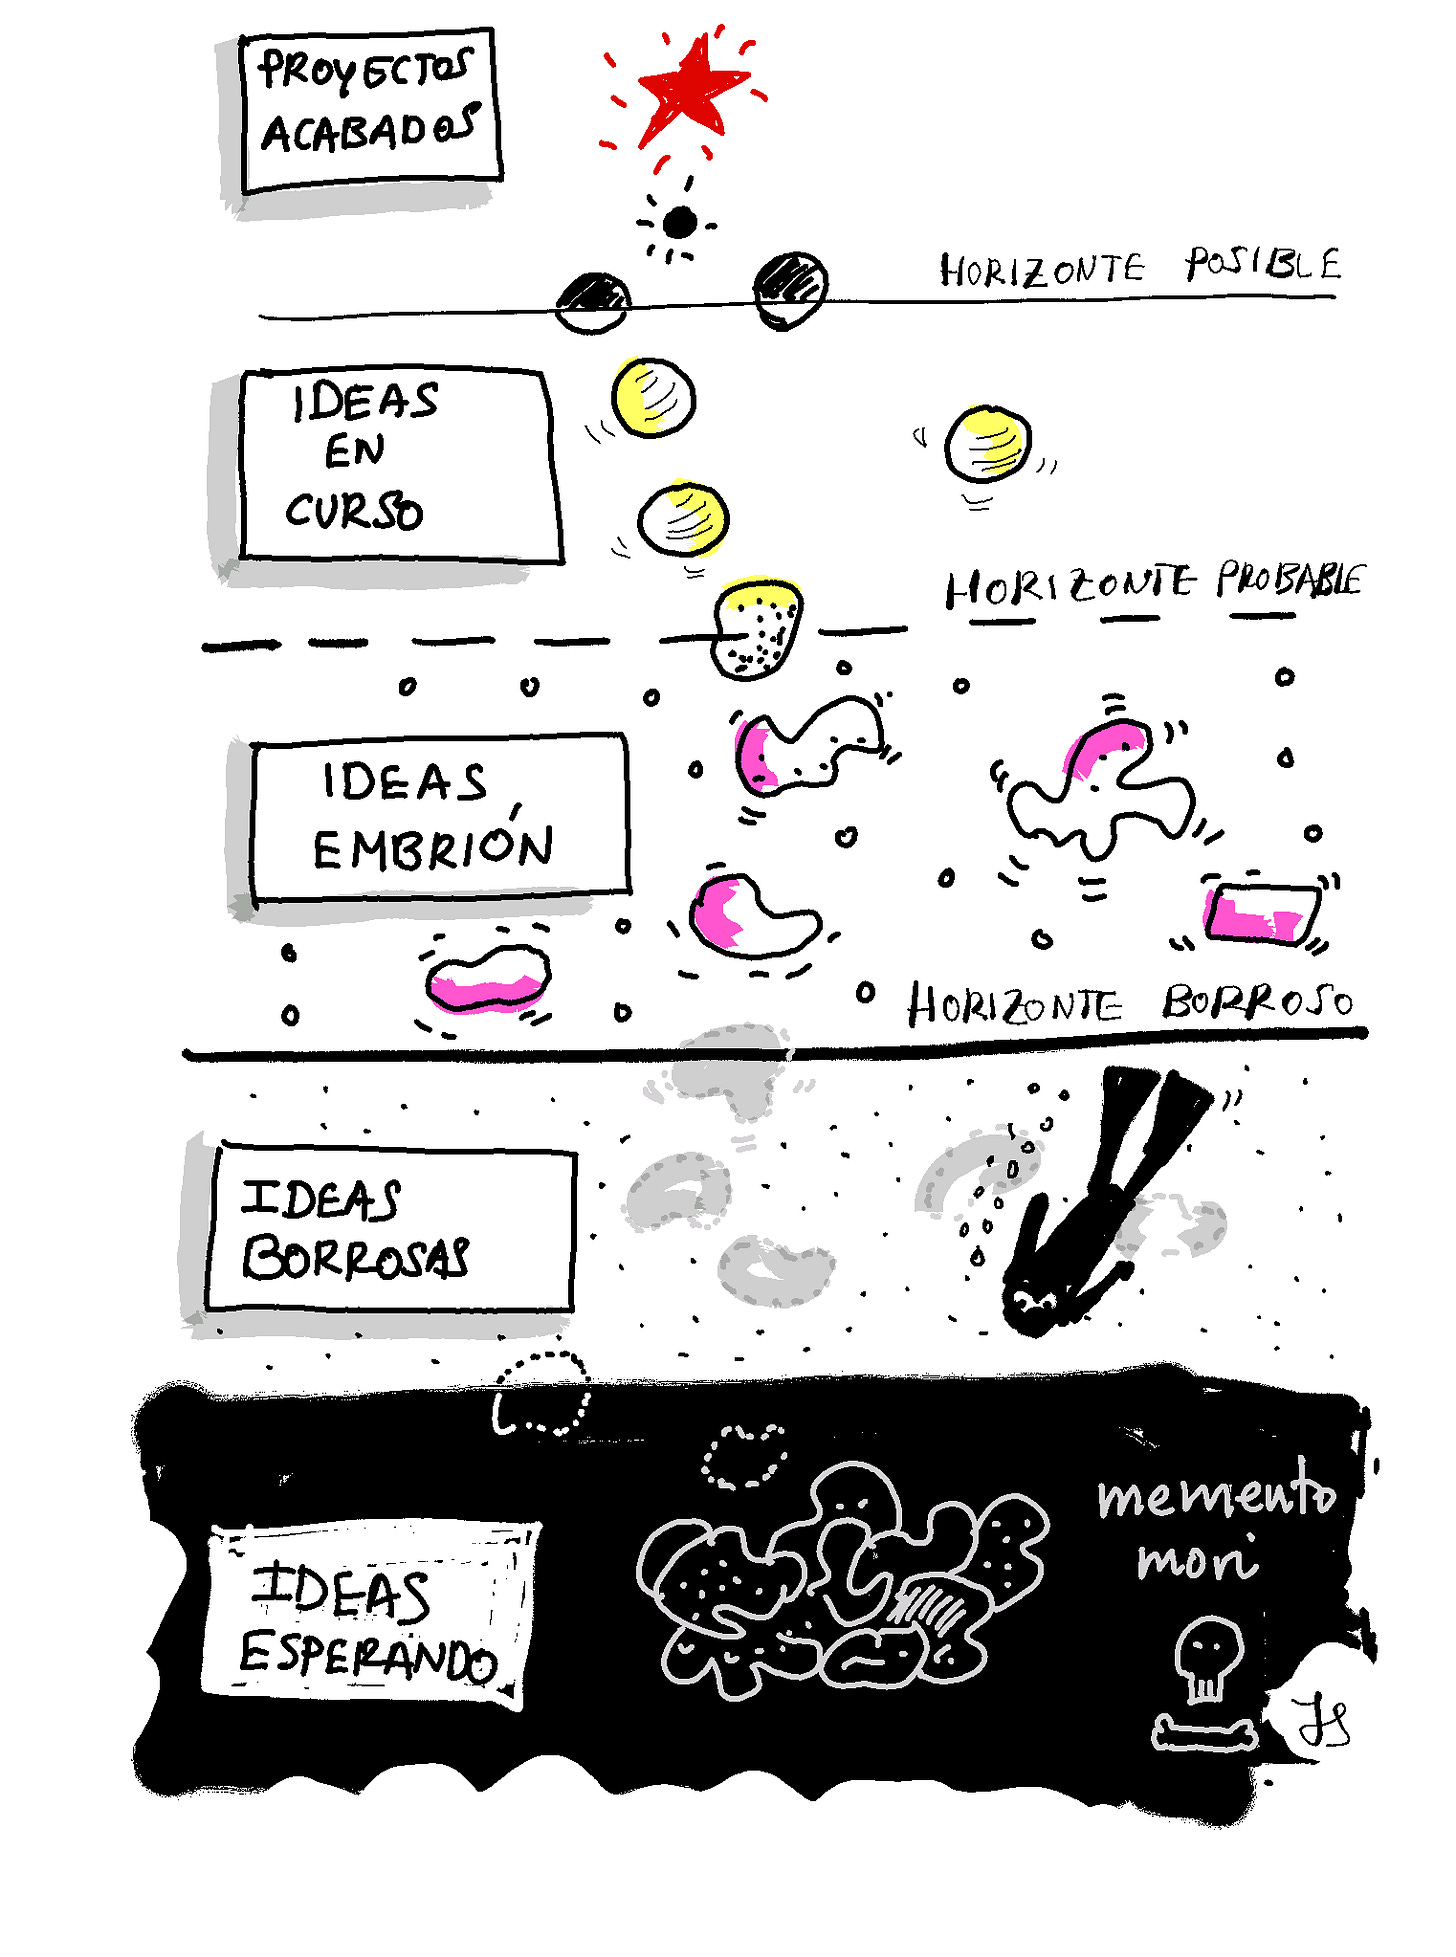 PROYECTOS
ACABADOS
HORIZONTE POSIBLE
IDEAS
EN
CURSO
HORIZONTE PROBABLE
IDEAS
EMBRIÓN
HORIZONTE BORROSO
IDEAS
BORROSAS
memento
mori
IDEAS
ESPERANDO
JS